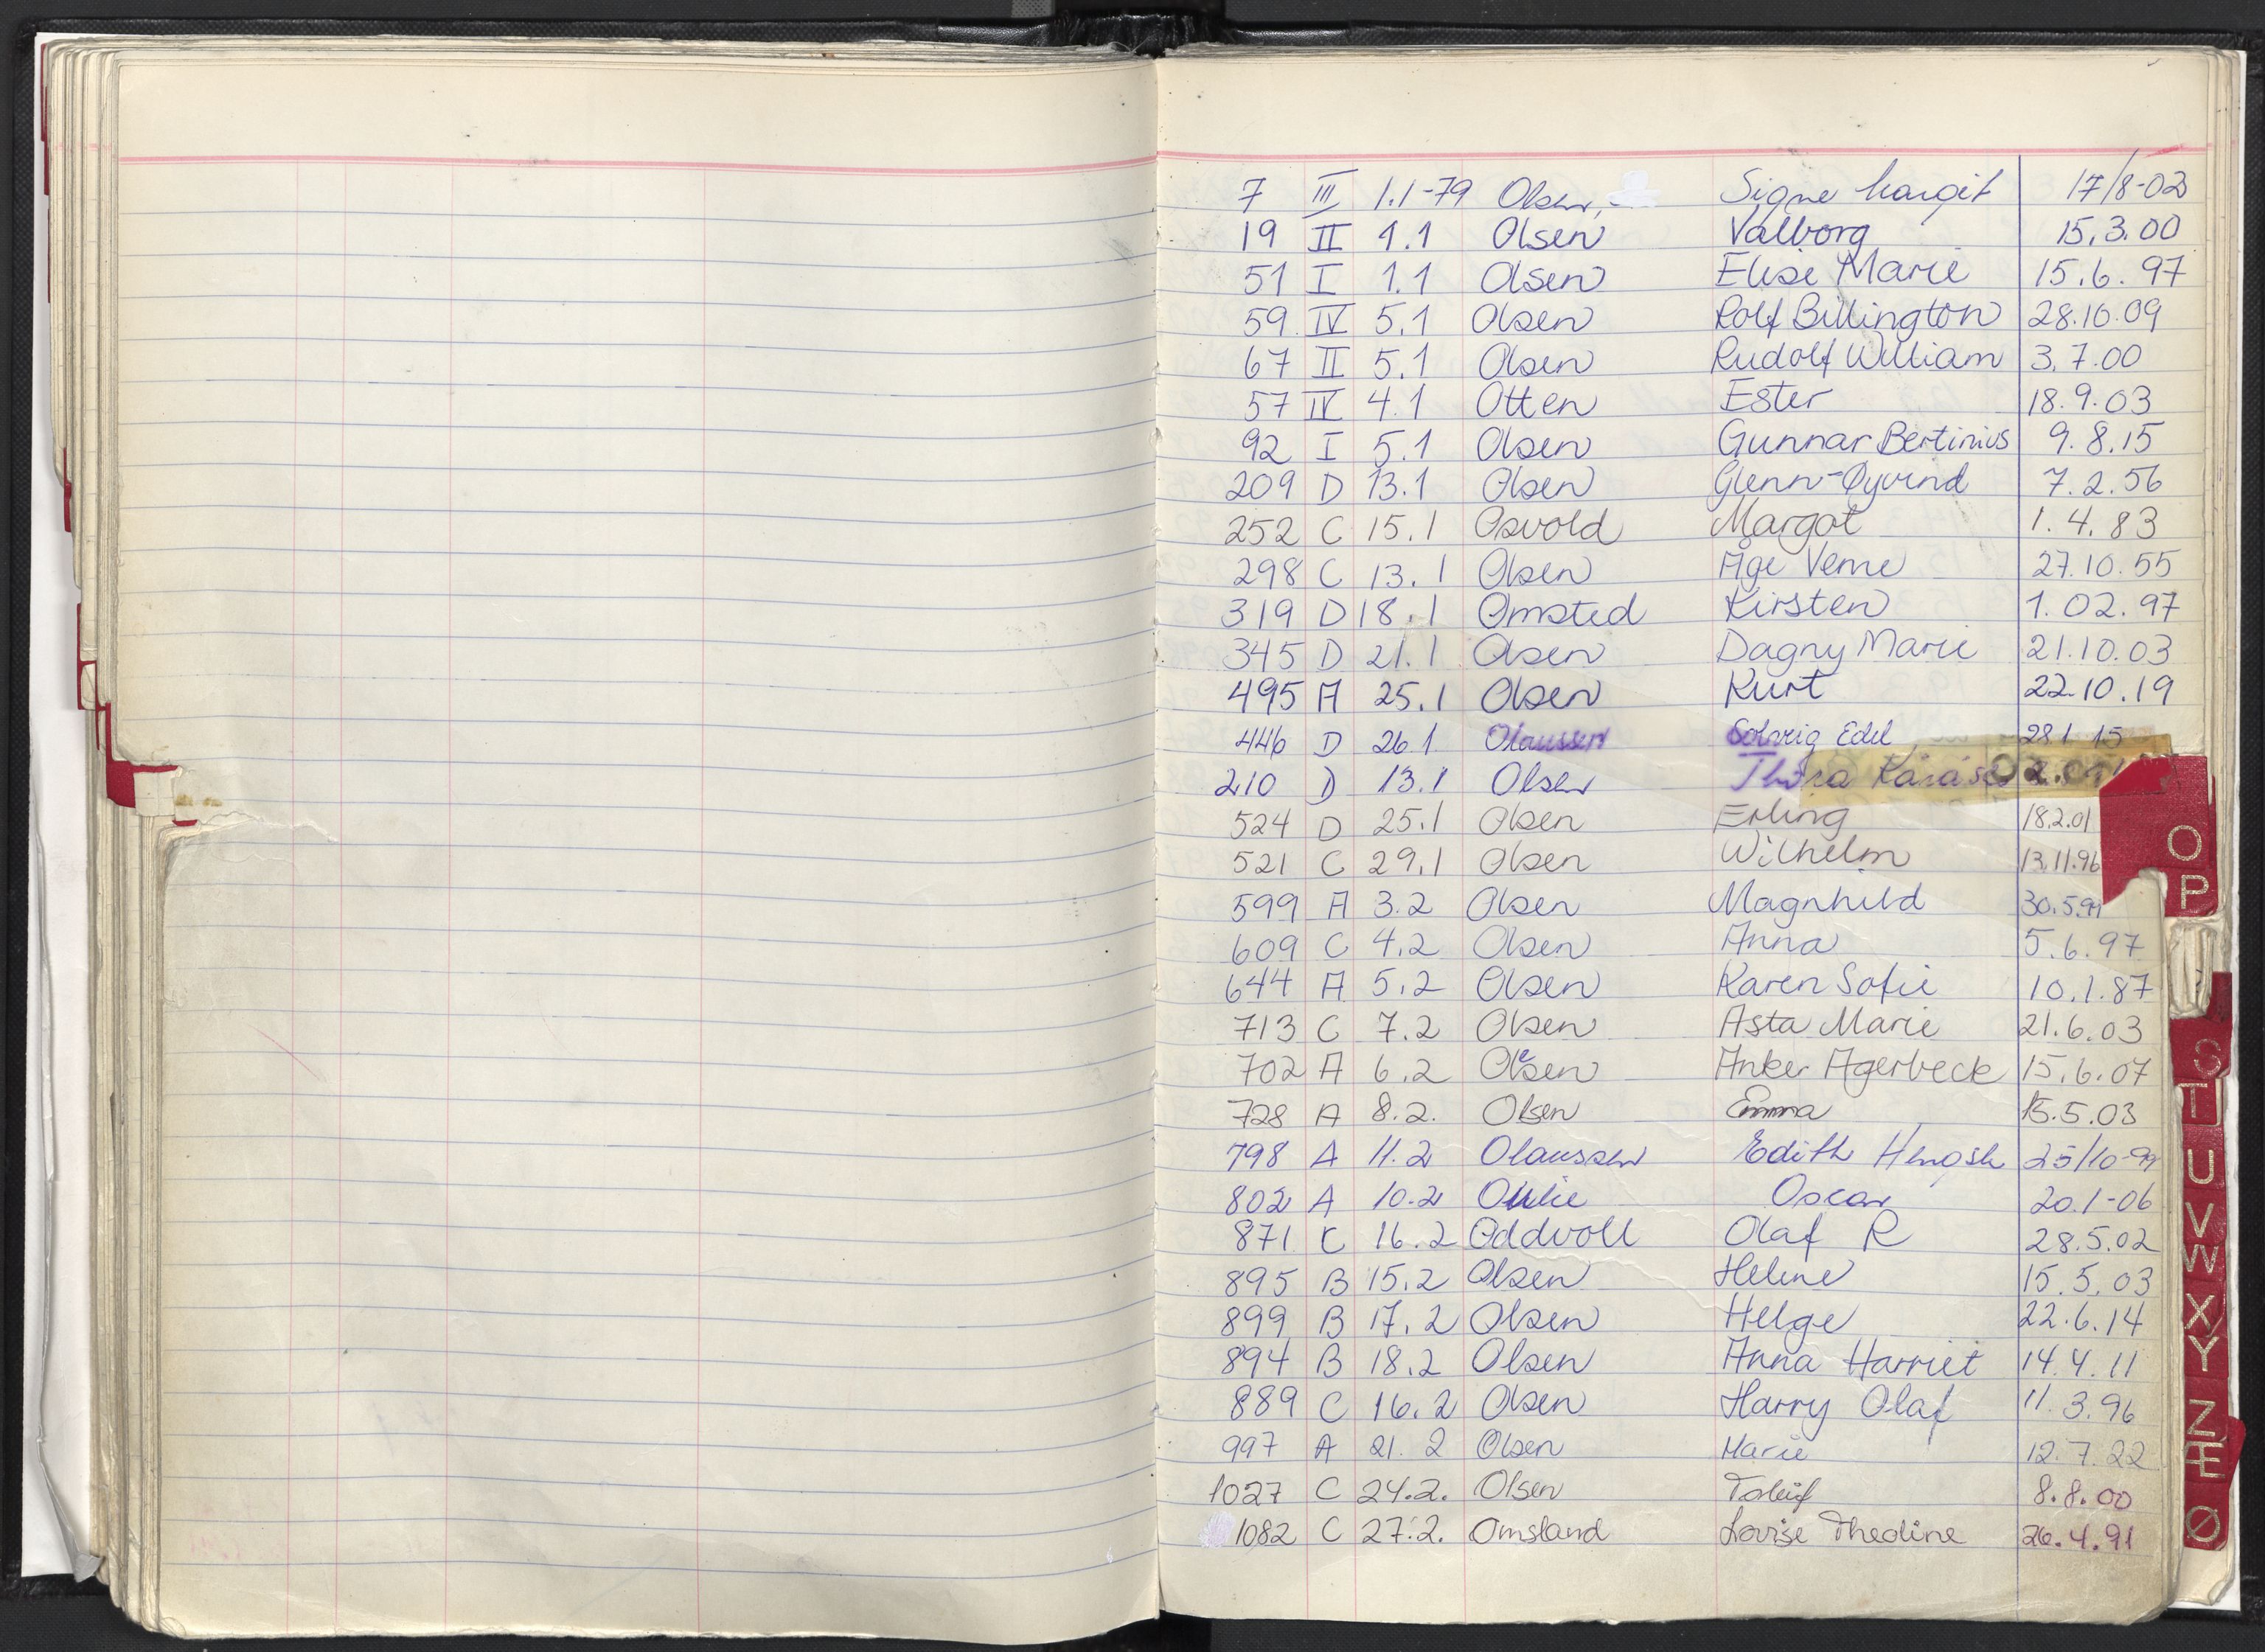 7 III 1.1-79 Olsen, Signe Margit 17/8-02
19 II 1.1 Olsen Valborg 15.3.00
51 I 1.1 Olsen Elise Marie 15.6.97
59 IV 5.1 Olsen Rolf Billington 28.10.09
67 II 5.1 Olsen Rudolf William 3.7.00
57 IV 4.1 Otten Ester 18.9.03
92 I 5.1 Olsen Gunnar Bertinius 9.8.15
209 D 13.1 Olsen Glenn-Øyvind 7.2.56
252 C 15.1 Osvold Margot 1.4.83
298 C 13.1 Olsen Åge Verne 27.10.55
319 D 18.1 Omsted Kirsten 1.02.97
345 D 21.1 Olsen Dagny Marie 21.10.03
495 A 25.1 Olsen Kurt 22.10.19
446 D 26.1 Olaussen Solveig Edel 28.1 15
210 D 13.1 Olsen
524 D 25.1 Olsen Erling 18.2.01
521 C 29.1 Olsen Wilhelm 13.11.96
599 A 3.2 Olsen Magnhild
609 C 4.2 Olsen Anna 5.6.97
644 A 5.2 Olsen Karen Sofie 10.1.87
713 C 7.2 Olsen Asta Marie 21.6.03
702 A 6.2 Olesen Anker Agerbeck 15.6.07
728 A 8.2. Olsen Emma 15.5.03
798 A 11.2 Olaussen Edith
802 A 10.2 Oscar 20.1-06
871 C 16.2 Oddvoll Olaf R 28.5.02
895 B 15.2 Olsen Helene 15.5.03
899 B 17.2 Olsen Helge 22.6.14
894 B 18.2 Olsen Anna Harriet 14.4.11
889 C 16.2 Olsen Harry Olaf 11.3.96
997 A 21.2 Olsen Marie 12.7.22
1027 C 24.2. Olsen 8.8.00
1082 C 27.2. Omsland Lovise Theoline 26.4.91
O
P
S
T
U
V
W
X
Y
Z
Æ
Ø